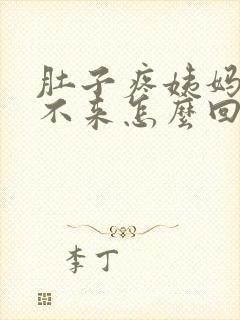 肚子疼姨妈
不来怎麼回
李丁